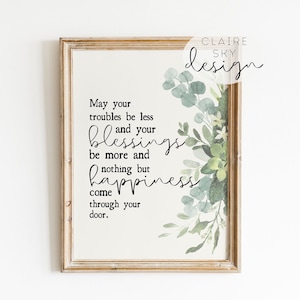 CLAIRE
SKY
design
May your
troubles be less
and your
blessings
be more and
nothing but
happiness
come
through your
door.